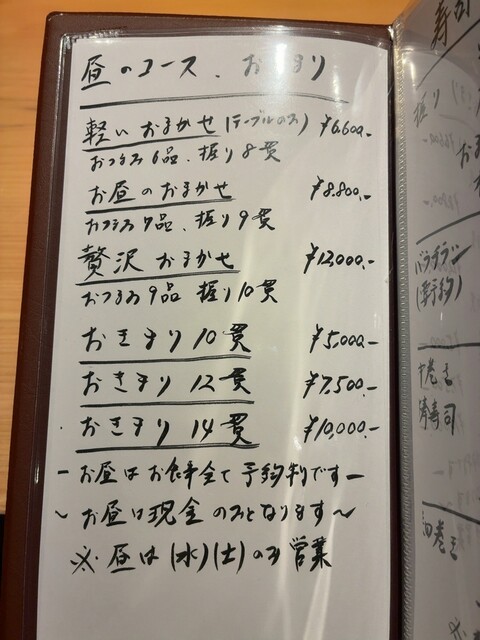 昼のコース、おきまり
軽いおまかせ(テーブルのみ) ¥6.600.-
おつまみ6品、握り8貫
お昼のおまかせ ¥8.800.-
おつまみ7品、握り9貫
贅沢おまかせ ¥12,000.-
おつまみ9品 握り10貫
おきまり10貫 ¥5,000.-
おきまり12貫 ¥7,500.-
おきまり14貫 ¥10,000.-
-お昼はお食事全て予約制です-
~お昼は現金のみとなります~
※昼は(水)(土)のみ営業
寿司
握り
バラチラシ
(要予約)